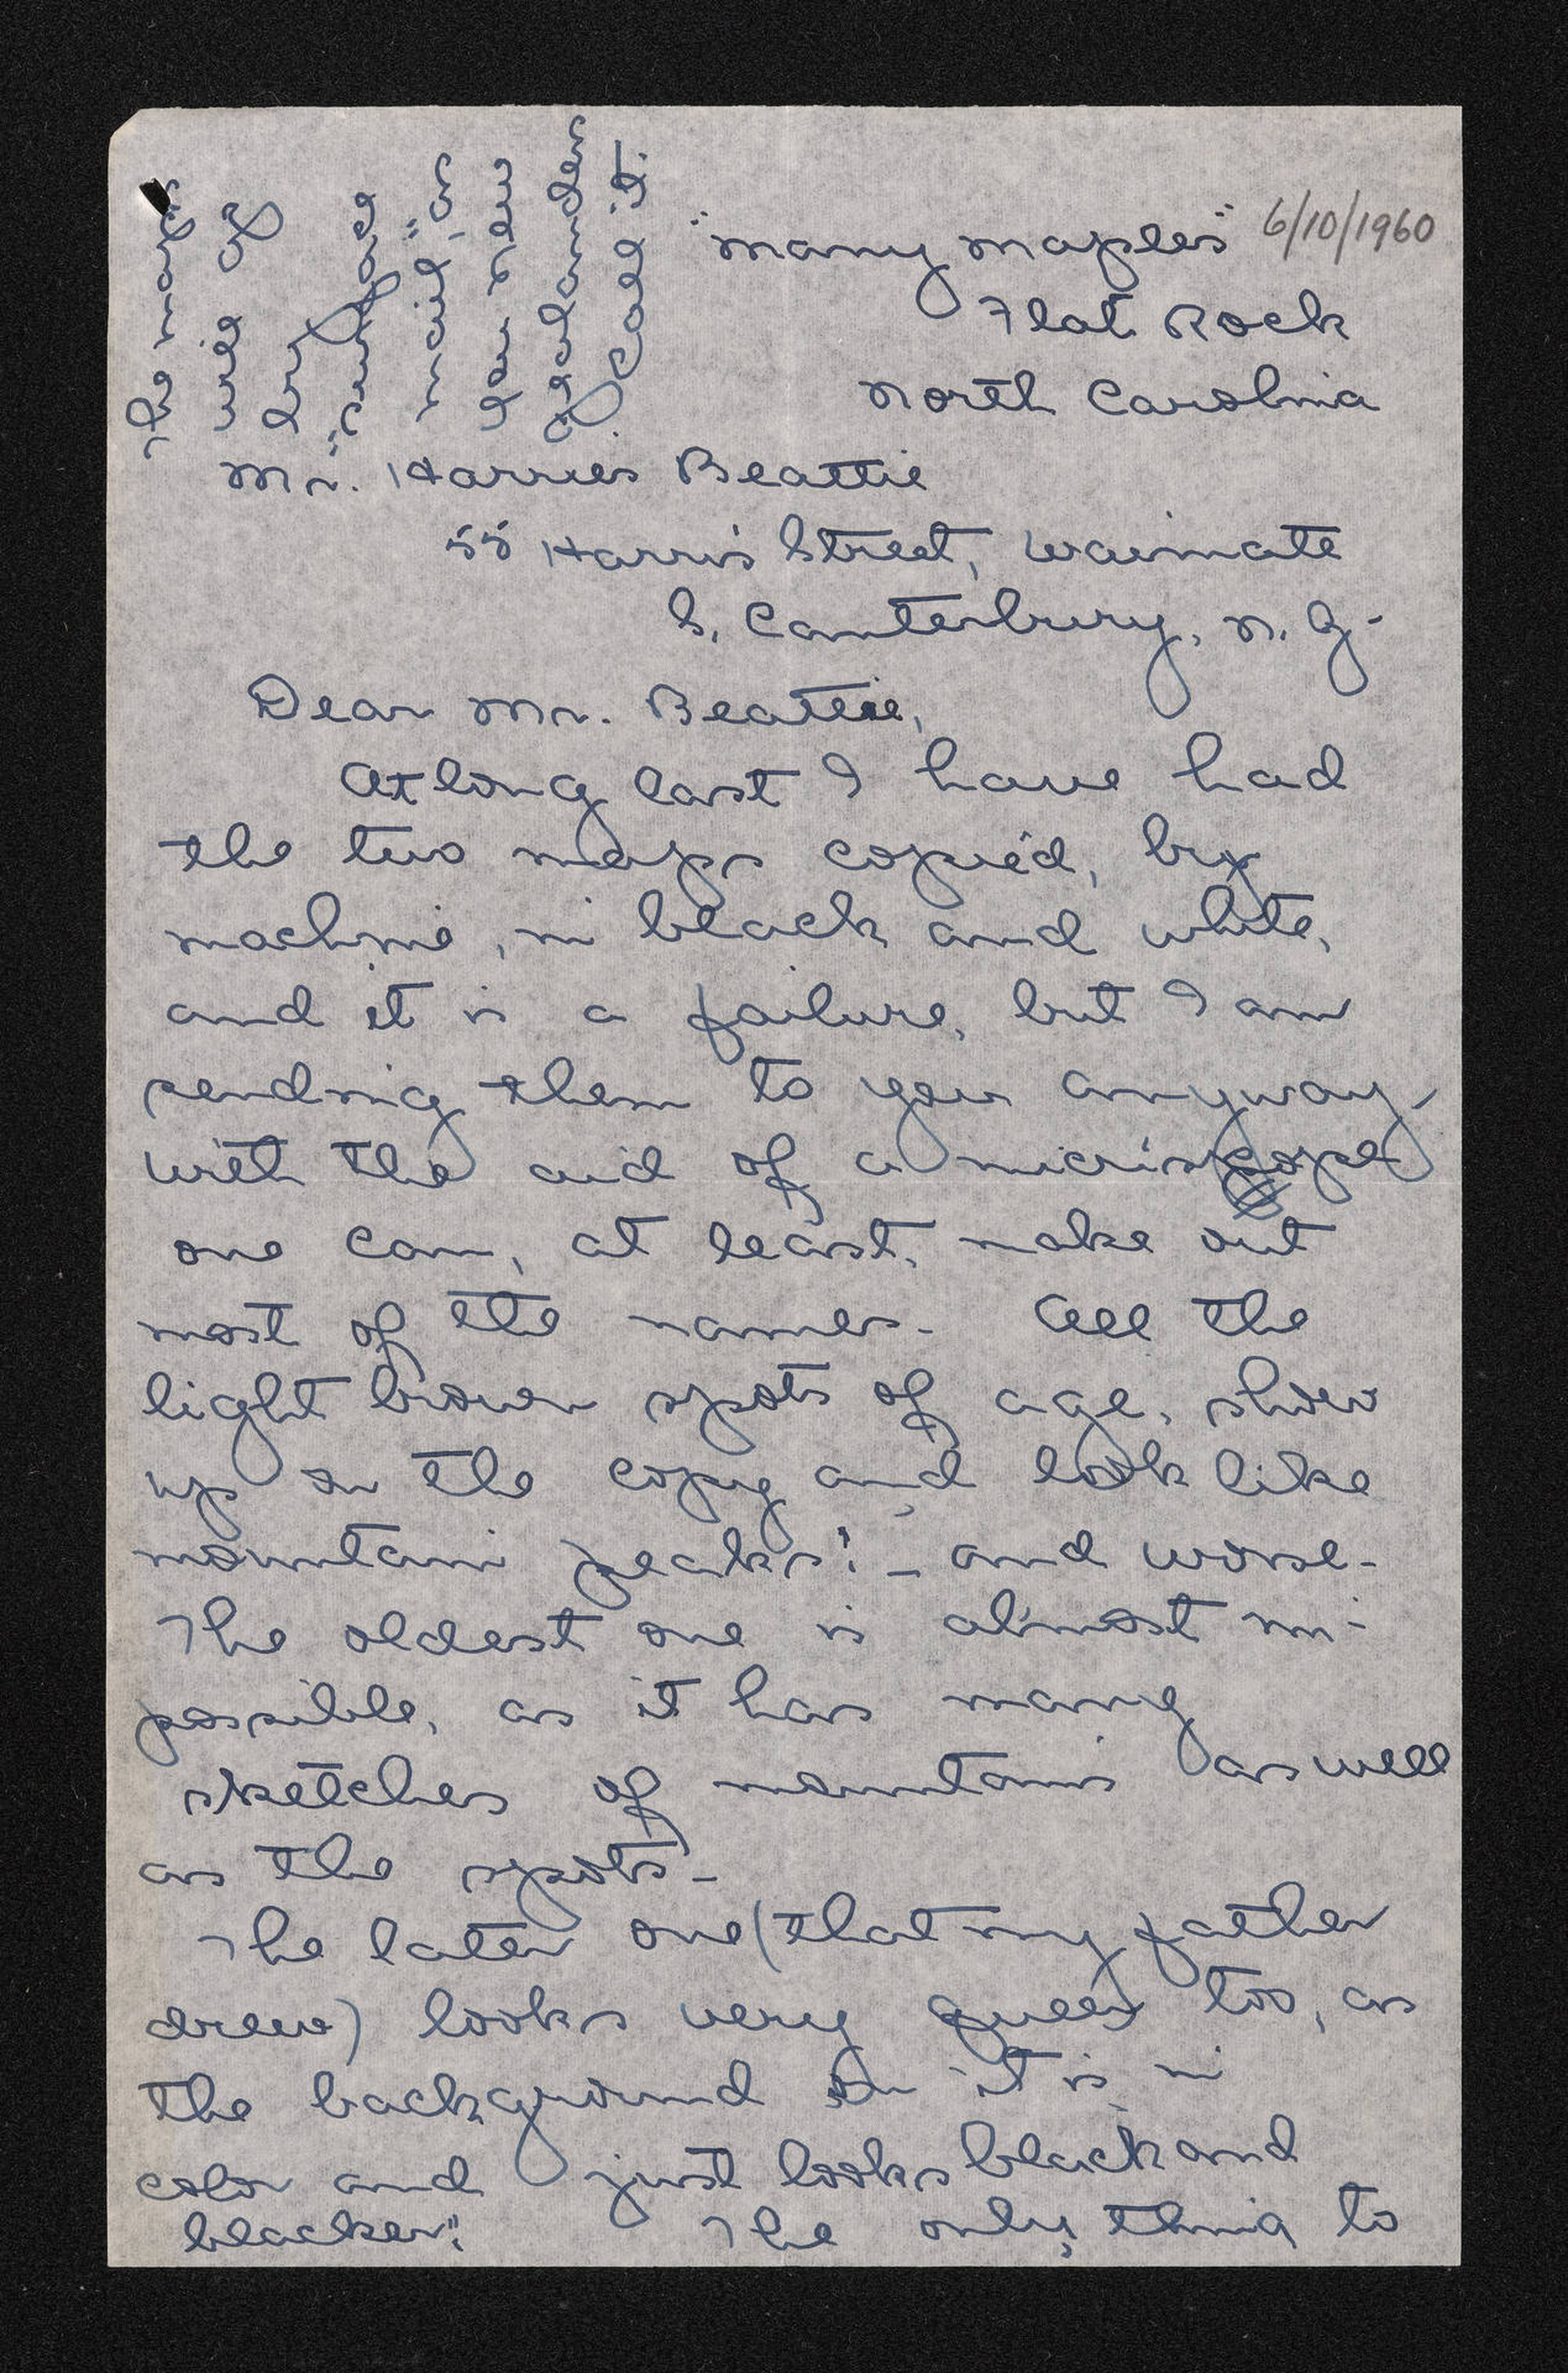 The maps
will go
by
"surface
mail", as
you New
Zealanders
call it.
"Many Maples" 6/10/1960
Flat Rock
North Carolina
Mr. Harries Beattie
55 Harris Street, Waimate
S. Canterbury, N. Z.
Dear Mr. Beattie,
At long last I have had
the two maps copied, by
machine, in black and white,
and it is a failure, but I am
sending them to you anyway.
With the aid of a microscope
one can, at least, make out
most of the names. All the
light brown spots of age, show
up on the copy and look like
mountain peaks! - and worse.
The oldest one is almost im-
possible, as it has many
sketches of mountains as well
as the spots.
The later one (that my father
drew) looks very queer too, as
the background on it is in
color and just looks black and
blacker! The only thing to